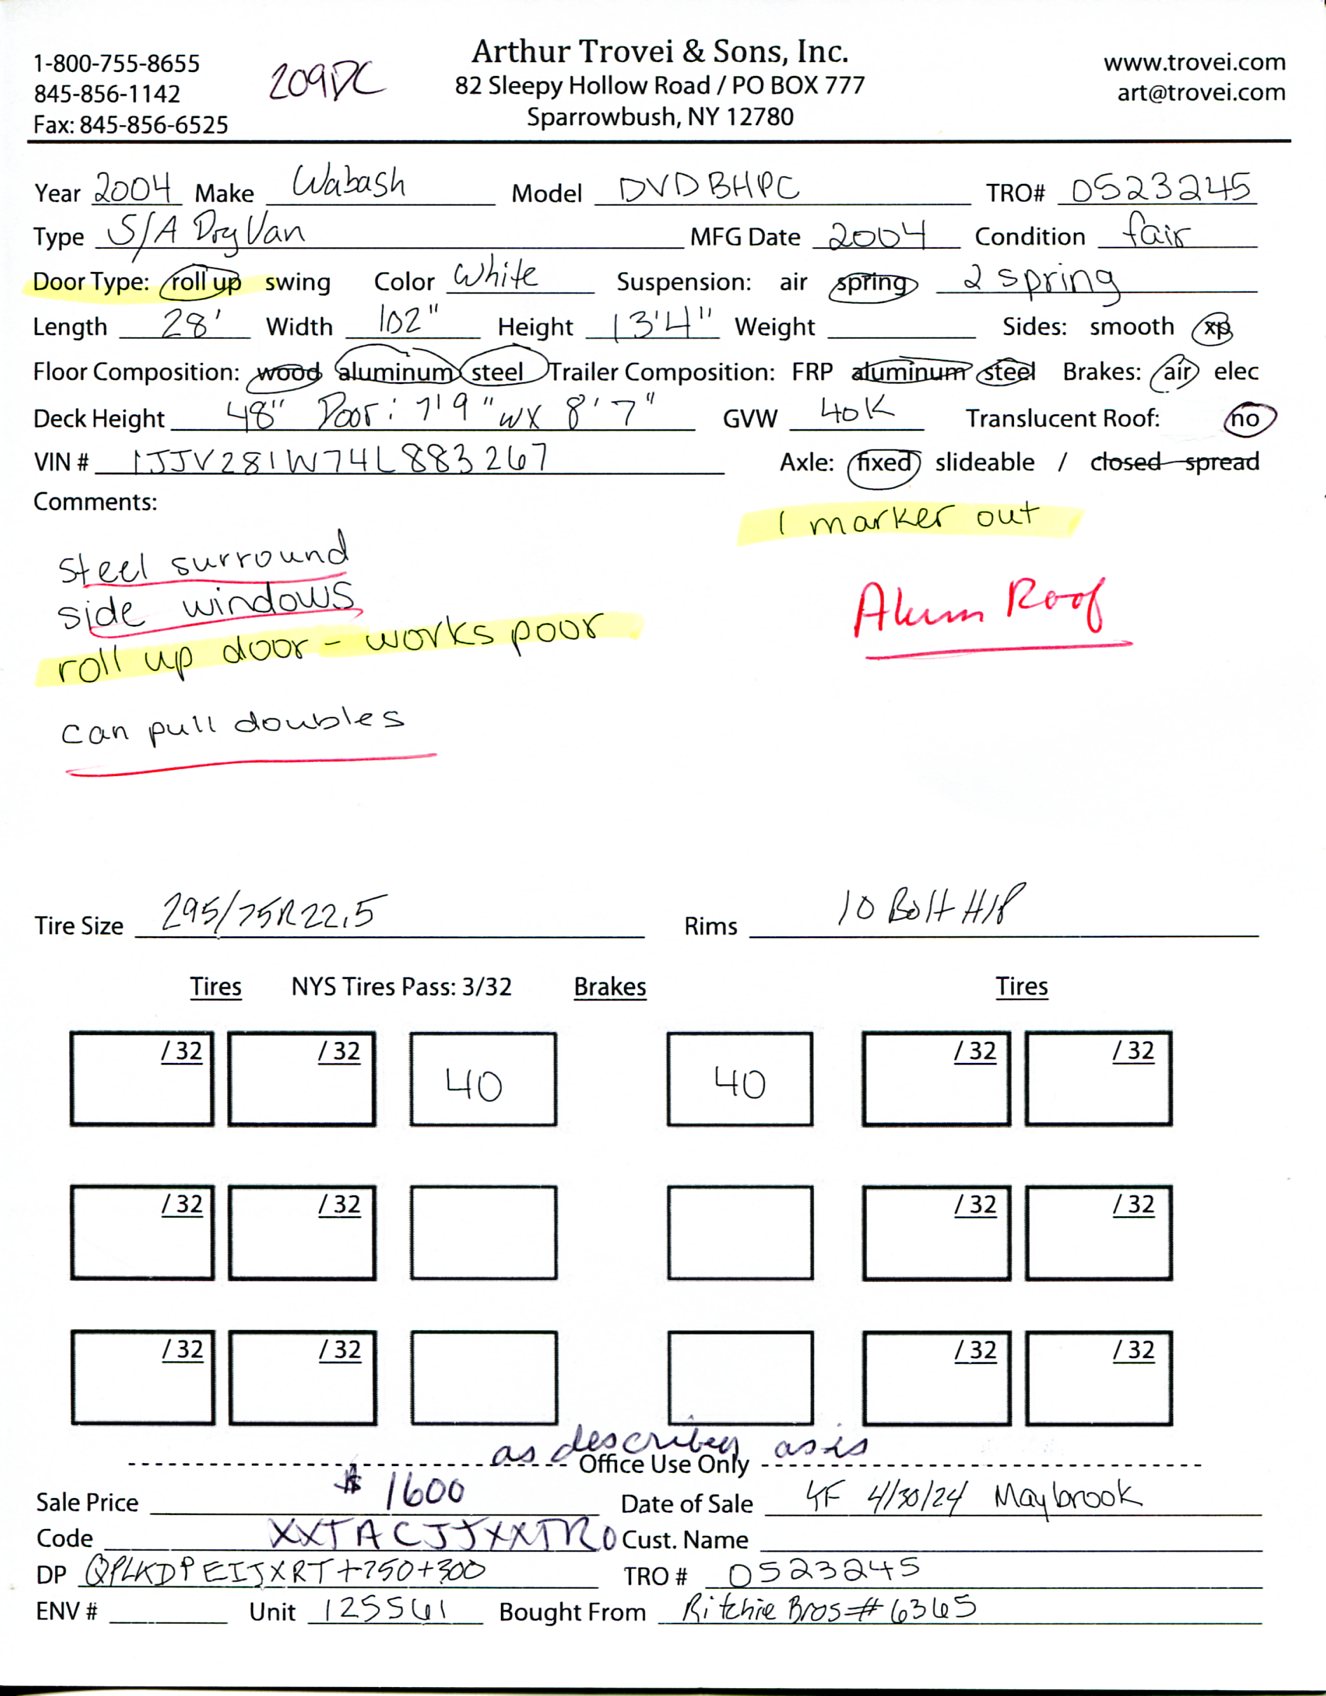 1-800-755-8655
845-856-1142
Fax: 845-856-6525
209DC
Arthur Trovei & Sons, Inc.
82 Sleepy Hollow Road / PO BOX 777
Sparrowbush, NY 12780
www.trovei.com
art@trovei.com
Year 2004 Make Wabash Model DVDBHPC TRO# 0523245
Type S/A Dry Van MFG Date 2004 Condition fair
Door Type: roll up swing Color White Suspension: air spring 2 spring
Length 28' Width 102" Height 13'4" Weight Sides: smooth xp
Floor Composition: wood aluminum steel Trailer Composition: FRP aluminum steel Brakes: air elec
Deck Height 48" Door: 7'9"w x 8'7" GVW 40K Translucent Roof: no
VIN # 1JJV281W74L883267 Axle: fixed slideable / closed spread
Comments:
1 marker out
steel surround
side windows
roll up door - works poor
Alum Roof
can pull doubles
Tire Size 295/75R22.5 Rims 10 Bolt H/P
Tires NYS Tires Pass: 3/32 Brakes Tires
/ 32 / 32 40 40 / 32 / 32
/ 32 / 32 / 32 / 32
/ 32 / 32 / 32 / 32
as described as is
Office Use Only
Sale Price $1600 Date of Sale 4/30/24 Maybrook
Code XXTACJJXXTRO Cust. Name
DP QPLKDPEIJXRT+750+300 TRO # 0523245
ENV # Unit 125561 Bought From Ritchie Bros # 6365